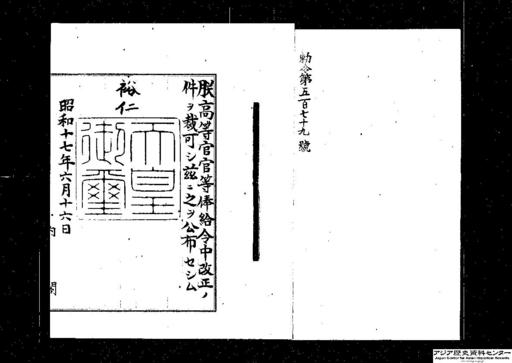 勅令第五百七十九號
朕高等官官等俸給令中改正ノ
件ヲ裁可シ茲ニ之ヲ公布セシム
裕仁
天皇
御璽
昭和十七年六月十六日
内閣
アジア歴史資料センター
Japan Center for Asian Historical Records